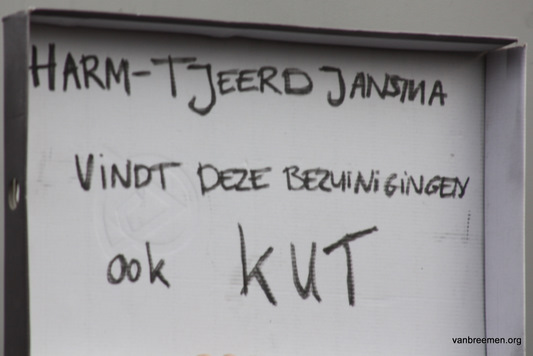 HARM-TJEERD JANSMA
VINDT DEZE BEZUINIGINGEN
ook KUT
vanbreemen.org